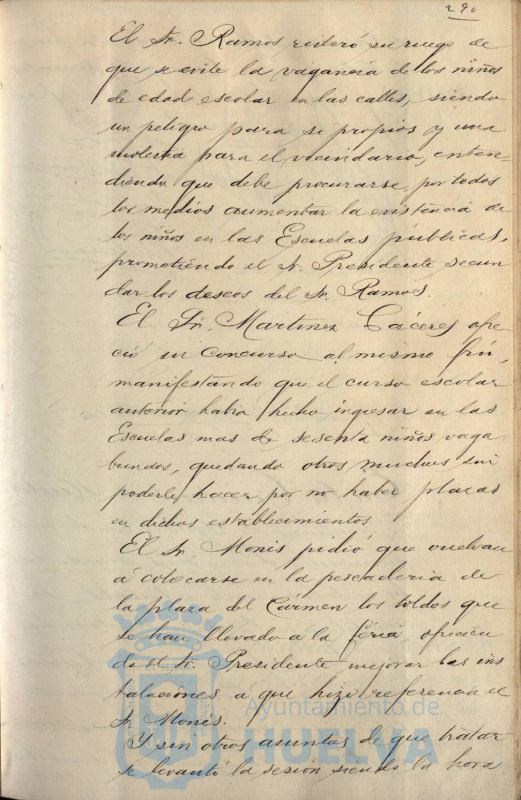 290
El Sr. Ramos reiteró su ruego de
que se evite la vagancia de los niños
de edad escolar en las calles, siendo
un peligro para si propios y una
molestia para el vecindario, enten-
diendo que debe procurarse, por todos
los medios aumentar la existencia de
los niños en las Escuelas públicas,
prometiendo el Sr. Presidente secun
dar los deseos del Sr. Ramos.
El Sr. Martinez Cáceres ofre-
ció su concurso al mismo fin,
manifestando que el curso escolar
anterior habia hecho ingresar en las
Escuelas mas de sesenta niños vaga
bundos, quedando otros muchos sin
poderlo hacer por no haber plazas
en dichos establecimientos
El Sr. Monis pidió que vuelvan
á colocarse en la pescaderia de
la plaza del Cármen los toldos que
se han llevado á la féria, ofrecien
do el Sr. Presidente mejorar las ins
talaciones á que hizo referencia el
Sr. Monis.
Y sin otros asuntos de que tratar
se levantó la sesión siendo la hora
Ayuntamiento de
HUELVA